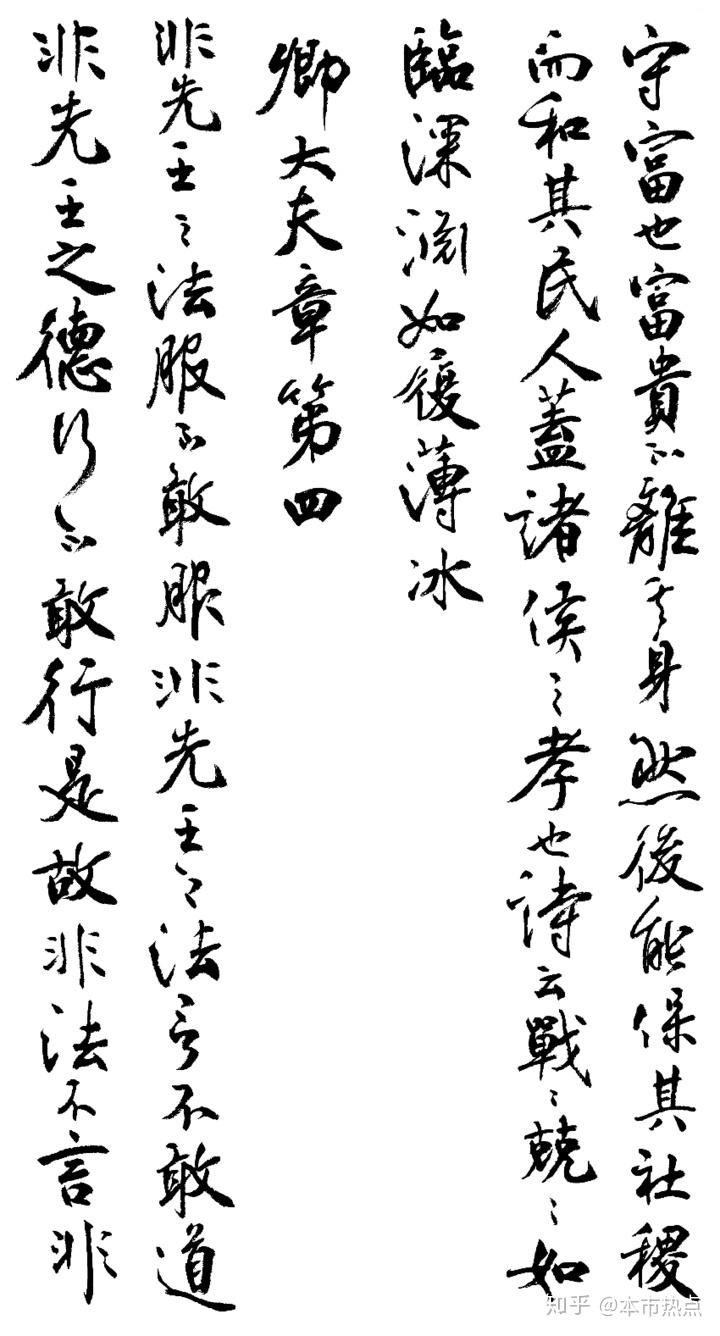 守富也富貴不離其身然後能保其社稷
而和其民人蓋諸侯之孝也詩云戰〻兢〻如
臨深淵如履薄冰
卿大夫章第四
非先王之法服不敢服非先王之法言不敢道
非先王之德行不敢行是故非法不言非
知乎 @本市热点